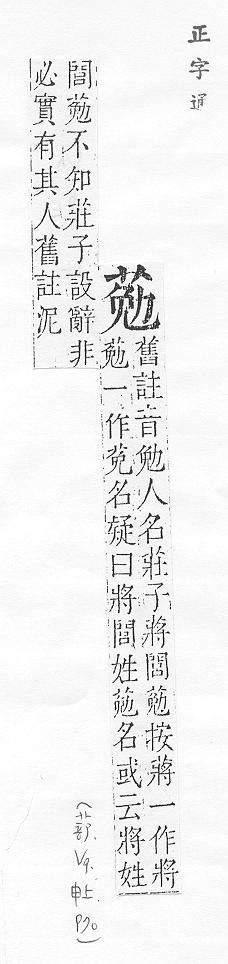 正字通
葂
舊註音勉人名莊子蔣閭葂按蔣一作將
葂一作莬名疑曰將閭姓葂名或云將姓
閭葂不知莊子設辭非
必實有其人舊註泥
(艹部. V9. 申上. P30)